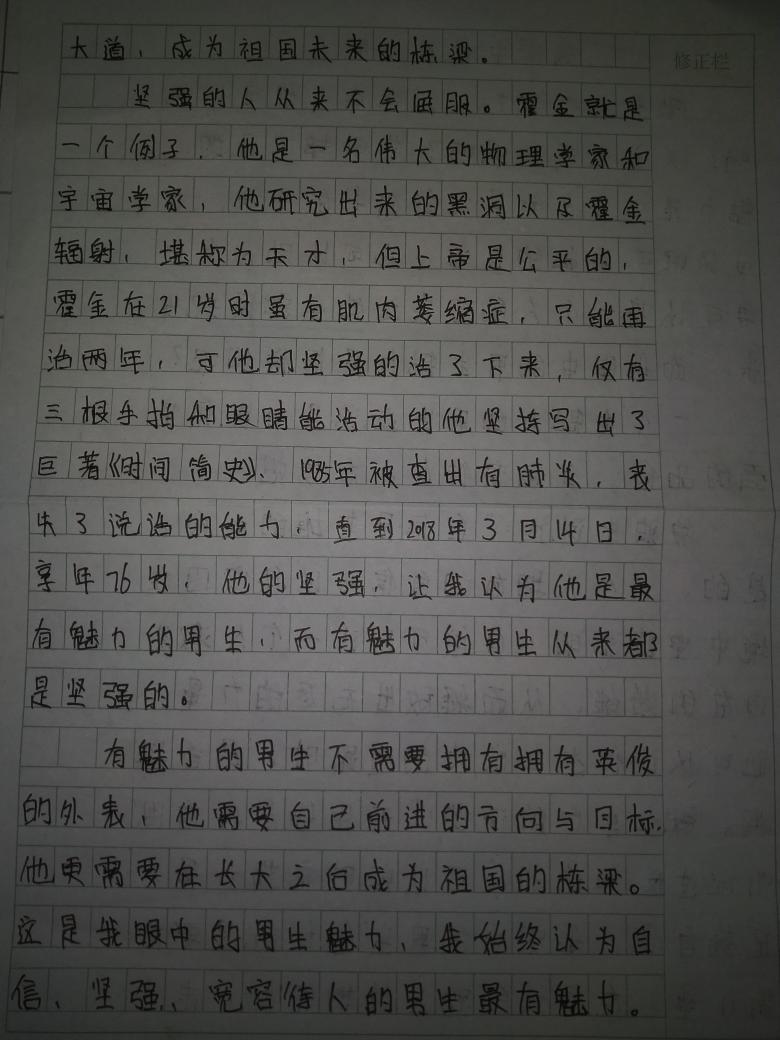 大道，成为祖国未来的栋梁。
修正栏
坚强的人从来不会屈服。霍金就是
一个例子，他是一名伟大的物理学家和
宇宙学家，他研究出来的黑洞以及霍金
辐射，堪称为天才，但上帝是公平的，
霍金在21岁时虽有肌肉萎缩症，只能再
活两年，可他却坚强的活了下来，仅有
三根手指和眼睛能活动的他坚持写出了
巨著《时间简史》、1985年被查出有肺炎，丧
失了说话的能力，直到2018年3月14日，
享年76岁，他的坚强，让我认为他是最
有魅力的男生，而有魅力的男生从来都
是坚强的。
有魅力的男生不需要拥有拥有英俊
的外表，他需要自己前进的方向与目标，
他更需要在长大之后成为祖国的栋梁。
这是我眼中的男生魅力，我始终认为自
信、坚强、宽容待人的男生最有魅力。